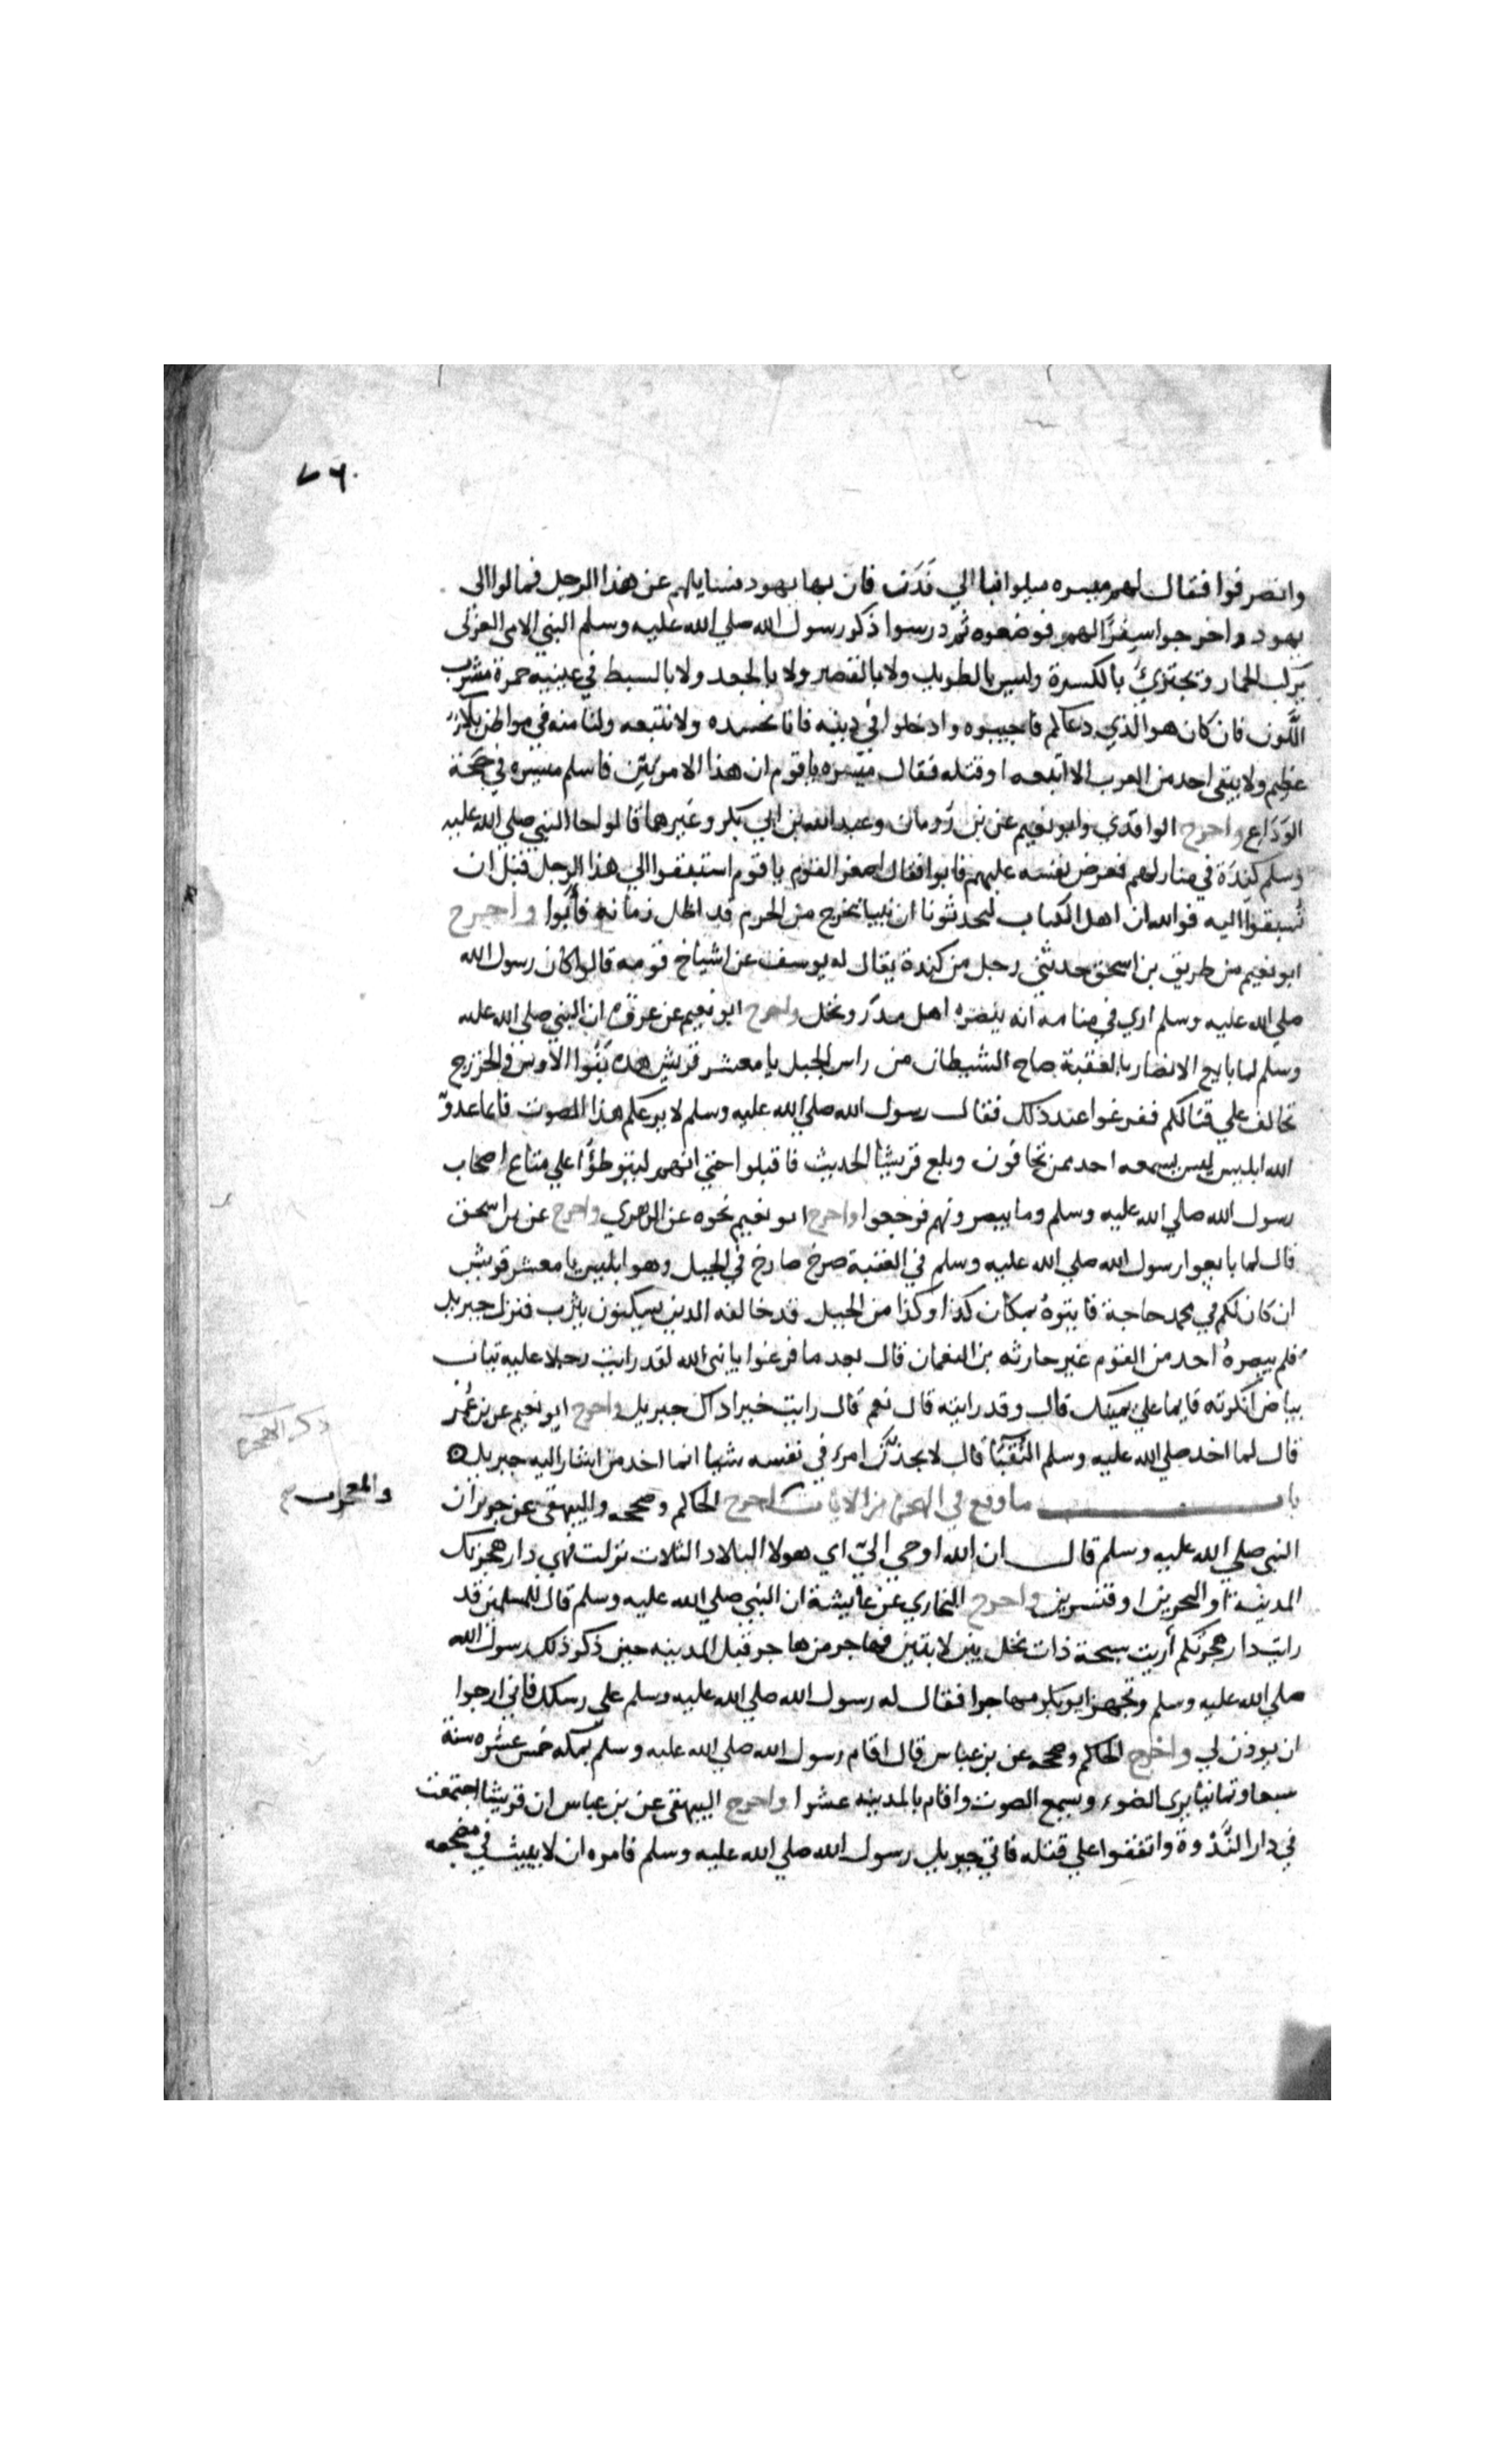 ٧٦
وانصرفوا فقال لهم ميسره ميلوا بنا الي فدك فان بها يهود نسايلهم عن هذا الرجل فمالوا الى
يهود واخرجوا سفرًا لهم فوضعوه ثم درسوا ذكر رسول الله صلي الله عليه وسلم النبي الامى العربى
يركب الحمار ويجتزئ بالكسرة وليس بالطويل ولا بالقصير ولا بالجعد ولا بالسبط في عينيه حمرة مشرب
اللون فان كان هو الذي دعاكم فاجيبوه وادخلوا في دينه فانا نحسده ولا نتبعه ولنا منه في مواطن بلاء
عظيم ولا يبقى احد من العرب الا اتبعه او قتله فقال ميسره يا قوم ان هذا الامر بيّن فاسلم ميسره في حجة
الوَدَاع واخرج الواقدي وابو نعيم عن بن رومان وعبد الله بن ابي بكر وغيرهما قالوا جا النبي صلي الله عليه
وسلم كندة في منازلهم فعرض نفسه عليهم فابوا فقال اصغر القوم يا قوم استبقوا الي هذا الرجل قبل ان
تُسبقوا اليه فوالله ان اهل الكتاب ليحدثونا ان نبيا يخرج من الحرم قد اظل زمانه فأبوا واخرج
ابو نعيم من طريق بن اسحق حدثني رجل من كندة يقال له يوسف عن اشياخ قومه قالوا كان رسول الله
صلي الله عليه وسلم اري في منامه انه ينصره اهل مدَر ونخل واخرج ابو نعيم عن عروة ان النبي صلي الله عليه
وسلم لما بايع الانصار بالعقبة صاح الشيطان من راس الجبل يا معشر قريش هذه بنوا الاوس والخزرج
تحالف علي قتالكم ففزعوا عند ذلك فقال رسول الله صلي الله عليه وسلم لا يرعكم هذا الصوت فانما عدوّ
الله ابليس ليس يسمعه احد ممن تخافون وبلغ قريشا الحديث فاقبلوا حتي انهم ليتوطؤا علي متاع اصحاب
رسول الله صلي الله عليه وسلم وما يبصرونهم فرجعوا واخرج ابو نعيم نحوه عن الزهري واخرج عن بن اسحق
قال لما بايعوا رسول الله صلي الله عليه وسلم في العقبة صرخ صارخ في الجبل وهو ابليس يا معشر قريش
ان كان لكم في محمد حاجة فايتوهُ بمكان كذا وكذا من الجبل قد خالفه الذين يسكنون يثرب فنزل جبريل
فلم يبصرهُ احد من القوم غير حارثه بن النعمان قال بعد ما فرغوا يا نبى الله لقد رايت رجلا عليه ثياب
بياض انكرته قايما علي يمينك قال وقد رايته قال نعم قال رايت خيرا ذاك جبريل واخرج ابو نعيم عن بن عُمر
قال لما اخد صلي الله عليه وسلم النقبَآ قال لا يجدنّ امرء في نفسه شيا انما اخد من اشار اليه جبريل
باب ما وقع في الهجرة من الايات اخرج الحاكم وصححه والبيهقى عن جرير ان
النبي صلي الله عليه وسلم قال ان الله اوحي اليّ اي هولا البلاد الثلاث نزلت فهي دار هجرتك
المدينة او البحرين او قنسرين واخرج البخاري عن عايشة ان النبي صلي الله عليه وسلم قال للمسلمين قد
رايت دار هجرتكم أُريت سبخة ذات نخل بين لابتين فهاجر من هاجر قبل المدينه حين ذكر ذلك رسول الله
صلي الله عليه وسلم وتجهز ابو بكر مهاجرا فقال له رسول الله صلي الله عليه وسلم علي رسلك فاني ارجوا
ان يوذن لي واخرج الحاكم وصححه عن بن عباس قال اقام رسول الله صلي الله عليه وسلم بمكه خمس عشره سنة
سبعا وثمانيا يرى الضوء ويسمع الصوت واقام بالمدينه عشرا واخرج البيهقى عن بن عباس ان قريشا اجتمعت
في دار النَّدْوة واتفقوا علي قتله فاتي جبريل رسول الله صلي الله عليه وسلم فامره ان لا يبيت في مضجعه
ذكر الهجرة